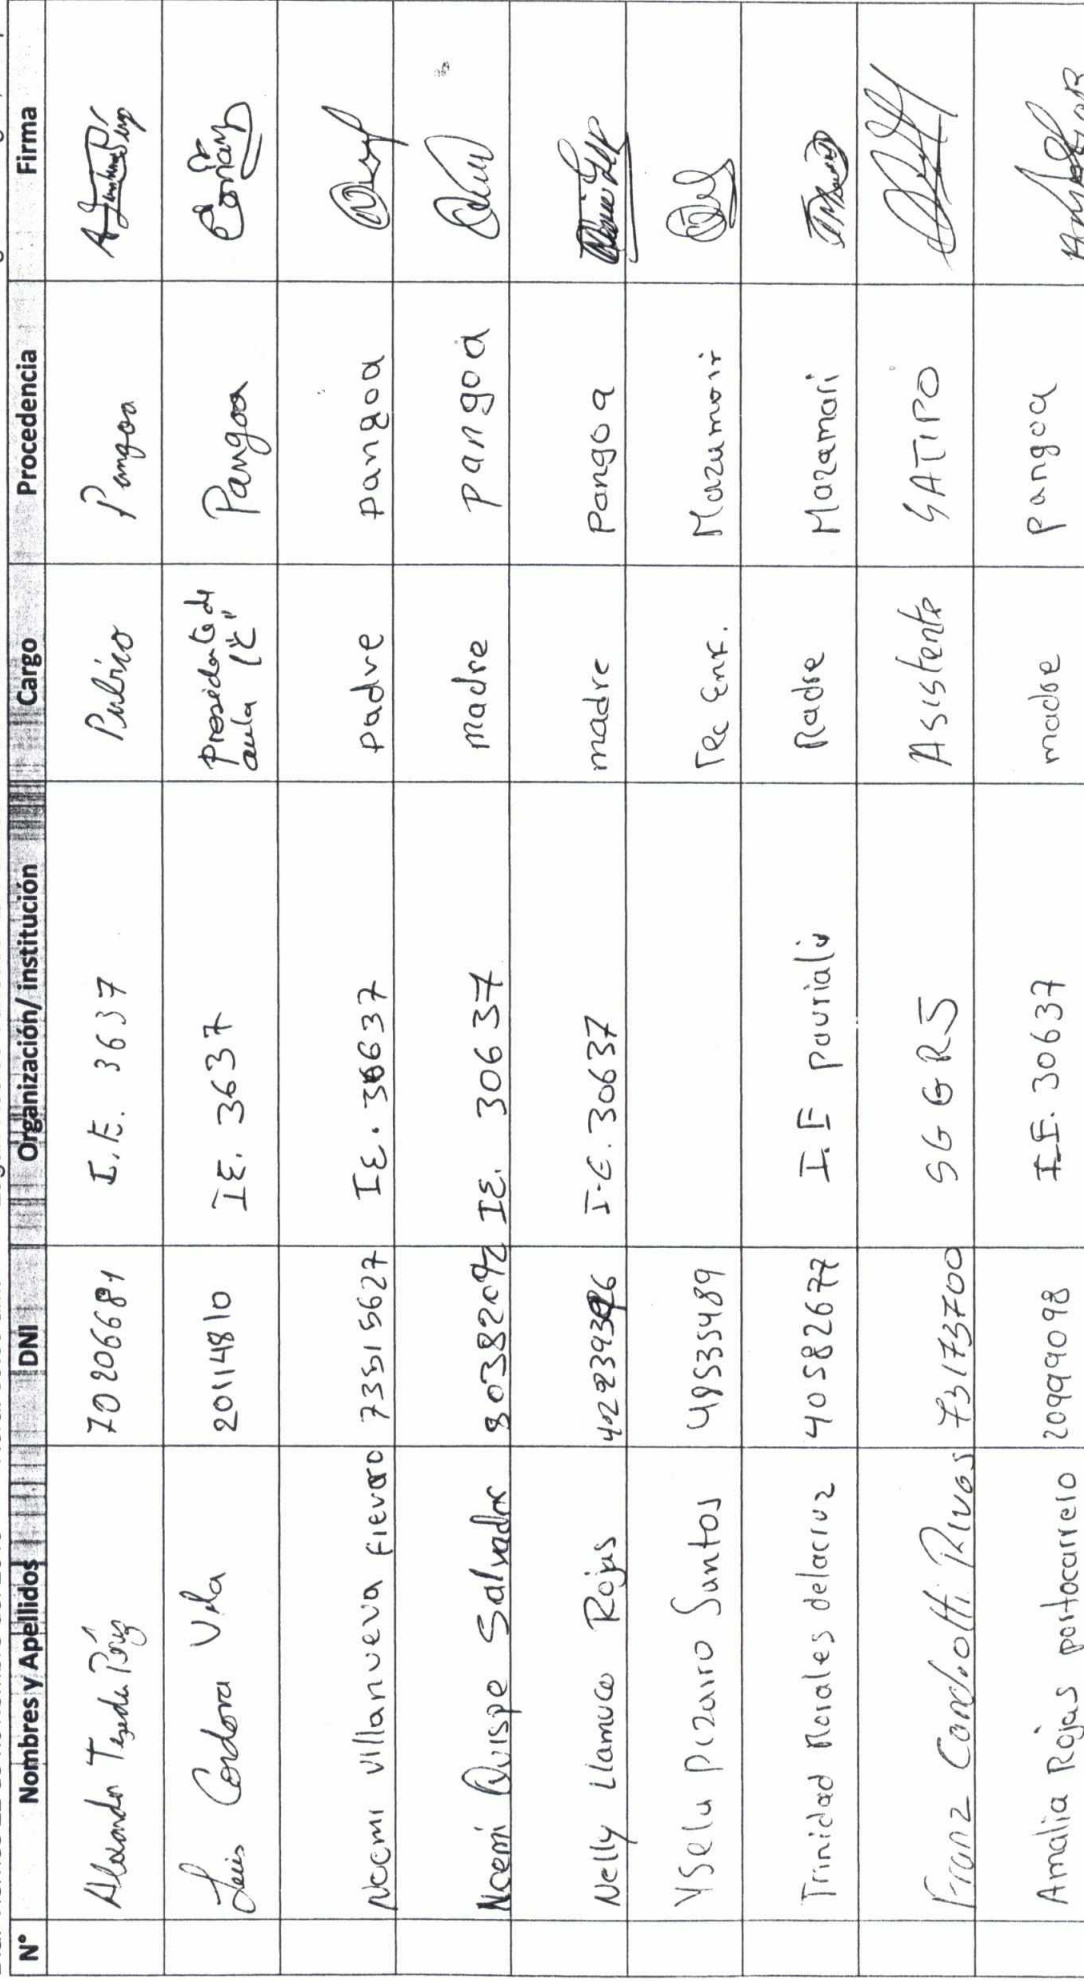 N° Nombres y Apellidos DNI Organización/ institución Cargo Procedencia Firma
Alexando 70206681 I.E. 3637 Pangoa
Luis Cordova Vila 20114810 IE. 3637 Presidente de Pangoa
aula "C"
Noemi villanueva fierro 73515627 IE. 30637 padre pangoa
Noemi Quispe Salvador 80382092 IE. 30637 madre pangoa
Nelly Llamuco Rojas I.E. 30637 madre pangoa
Ysela Pizarro Santos 48535489 Tec Enf.
Trinidad Morales delacruz 40582677 I.E Padre Mazamari
Franz Rivas 73173700 SG GRJ Asistente SATIPO
Amalia Rojas portocarrero 20999098 I.E. 30637 madre pangoa